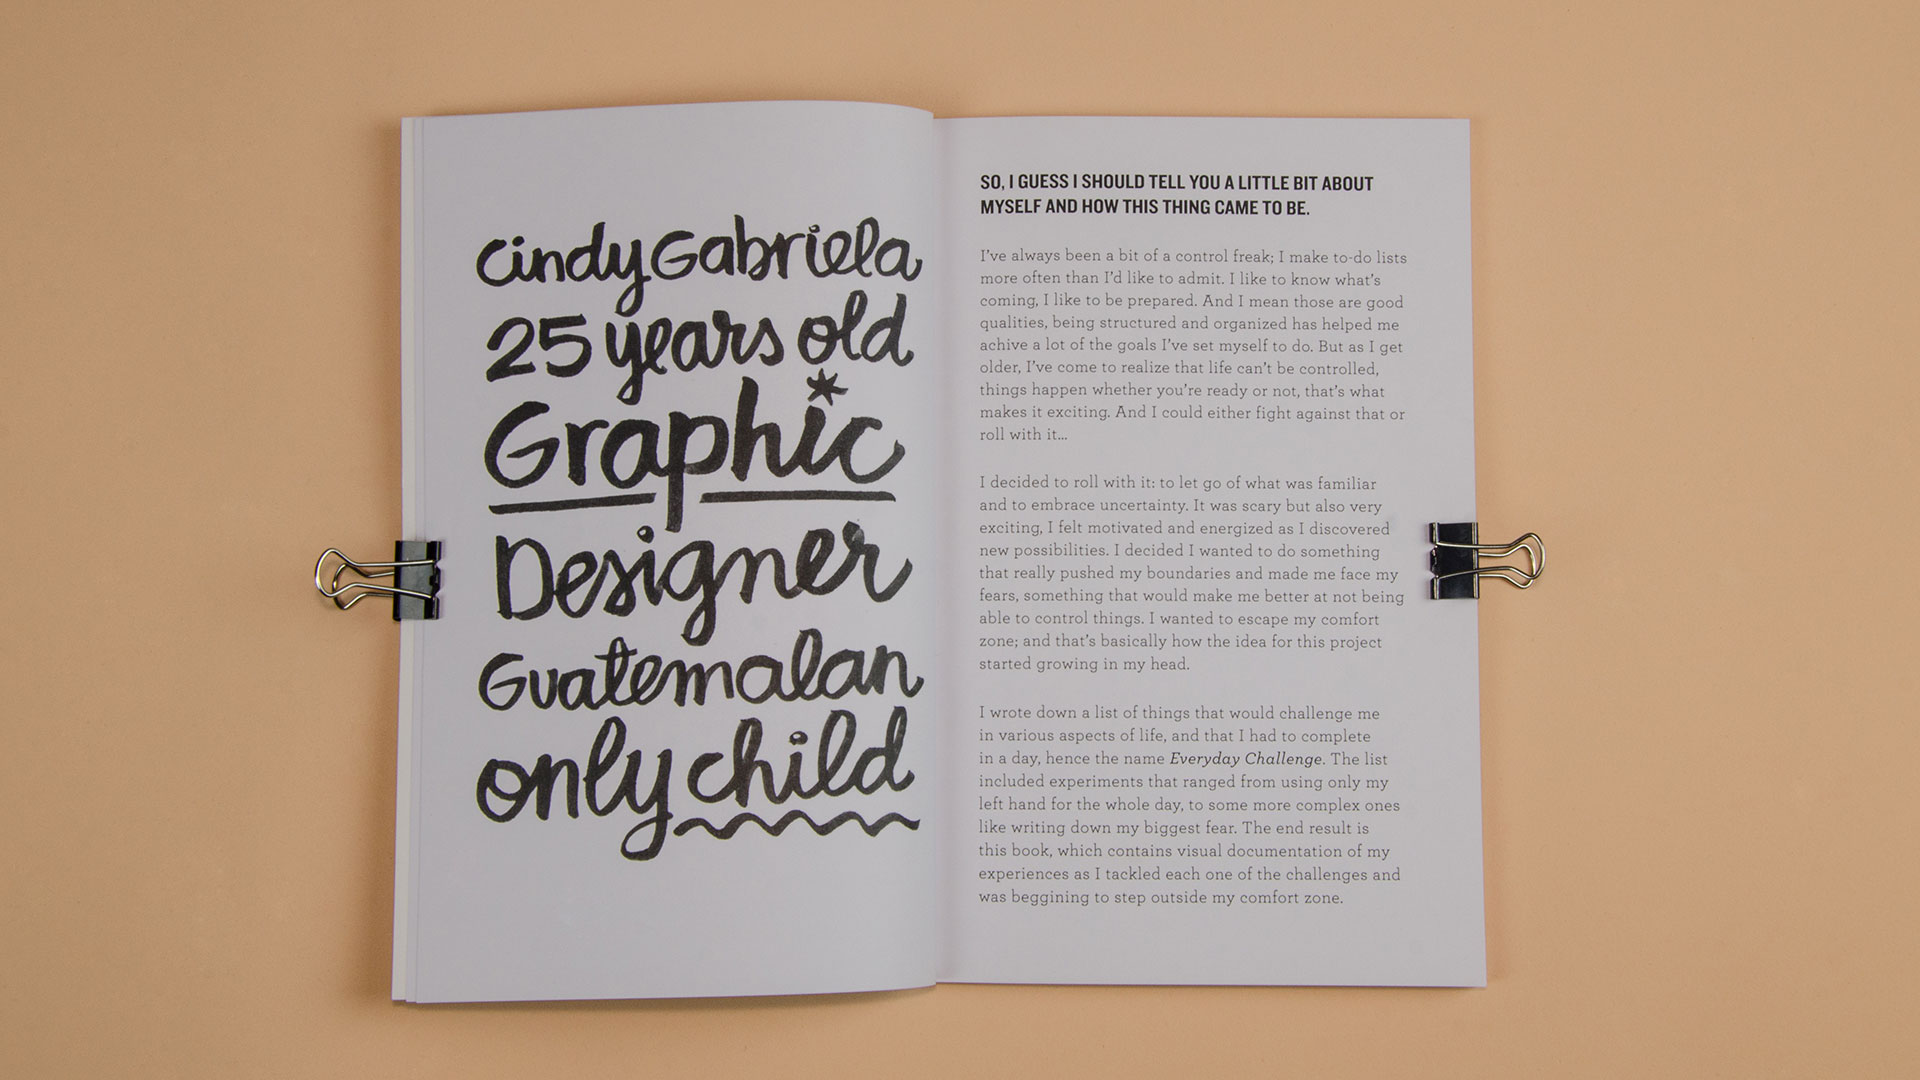 Cindy Gabriela
25 years old
Graphic
Designer
Guatemalan
only child
SO, I GUESS I SHOULD TELL YOU A LITTLE BIT ABOUT
MYSELF AND HOW THIS THING CAME TO BE.
I've always been a bit of a control freak; I make to-do lists
more often than I'd like to admit. I like to know what's
coming, I like to be prepared. And I mean those are good
qualities, being structured and organized has helped me
achive a lot of the goals I've set myself to do. But as I get
older, I've come to realize that life can't be controlled,
things happen whether you're ready or not, that's what
makes it exciting. And I could either fight against that or
roll with it...
I decided to roll with it: to let go of what was familiar
and to embrace uncertainty. It was scary but also very
exciting, I felt motivated and energized as I discovered
new possibilities. I decided I wanted to do something
that really pushed my boundaries and made me face my
fears, something that would make me better at not being
able to control things. I wanted to escape my comfort
zone; and that's basically how the idea for this project
started growing in my head.
I wrote down a list of things that would challenge me
in various aspects of life, and that I had to complete
in a day, hence the name Everyday Challenge. The list
included experiments that ranged from using only my
left hand for the whole day, to some more complex ones
like writing down my biggest fear. The end result is
this book, which contains visual documentation of my
experiences as I tackled each one of the challenges and
was beggining to step outside my comfort zone.